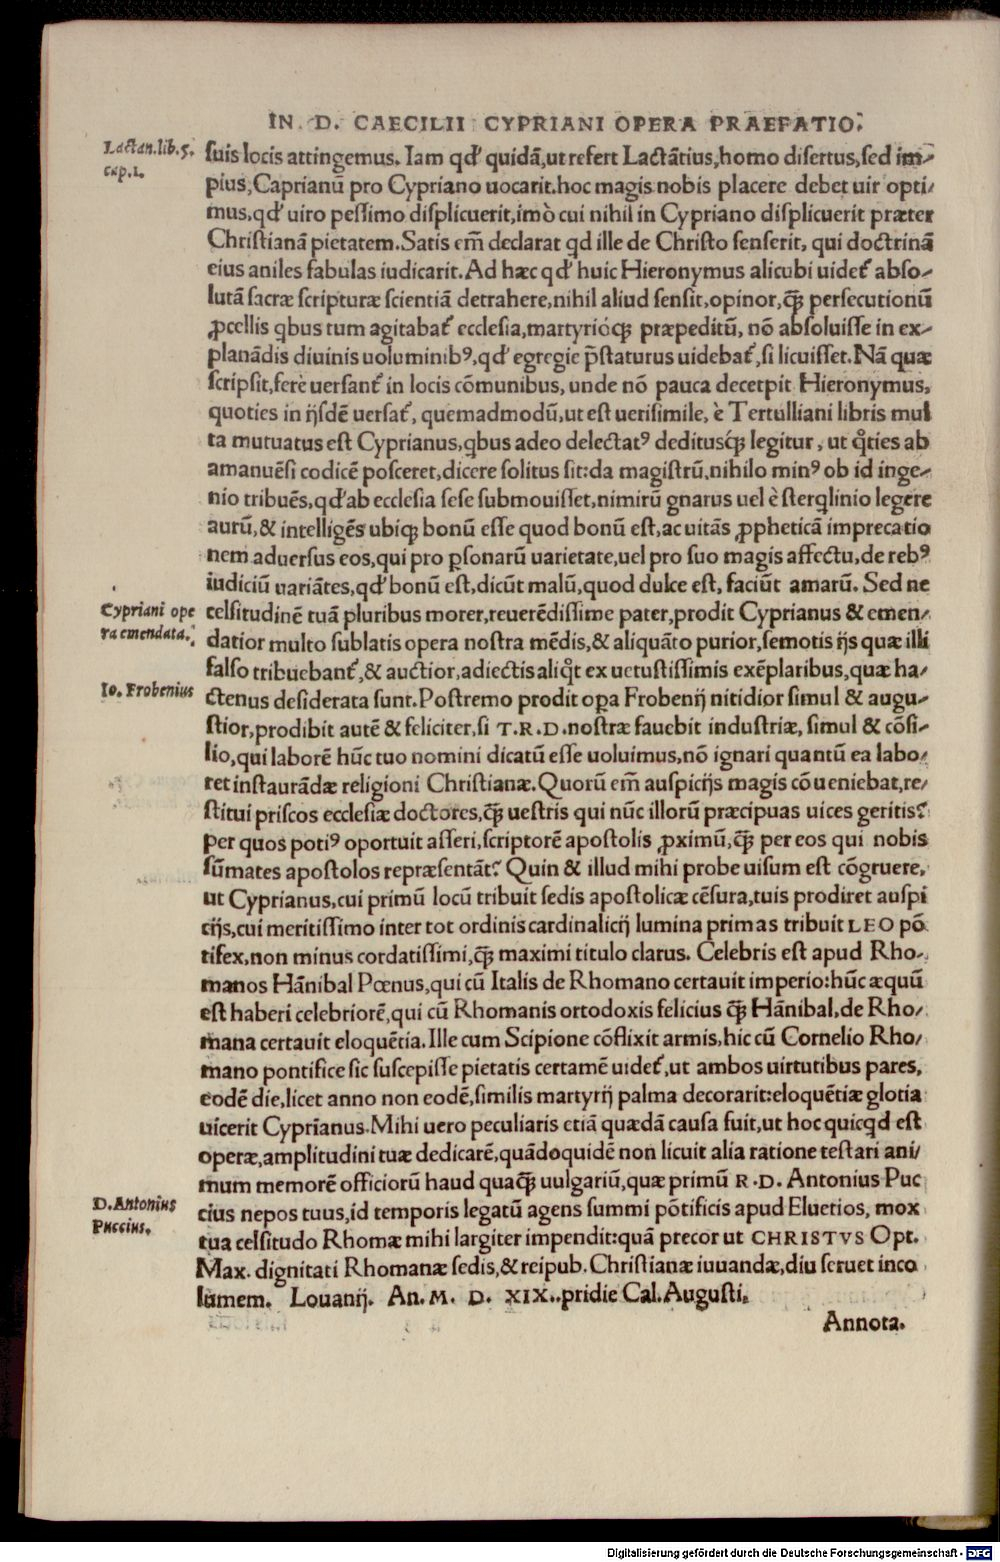 IN. D. CAECILII CYPRIANI OPERA PRAEFATIO.
Lactan.lib.5.
cap.1.
suis locis attingemus. Iam qđ quidã,ut refert Lactãtius,homo disertus,sed im-
pius,Caprianũ pro Cypriano uocarit.hoc magis nobis placere debet uir opti/
mus,qđ uiro pessimo displicuerit,imò cui nihil in Cypriano displicuerit præter
Christianã pietatem.Satis em̃ declarat qd ille de Christo senserit, qui doctrinã
eius aniles fabulas iudicarit.Ad hæc qđ huic Hieronymus alicubi uidet̃ abso-
lutã sacræ scripturæ scientiã detrahere,nihil aliud sensit,opinor,q̃ꝫ persecutionũ
ꝓcellis qbus tum agitabat̃ ecclesia,martyrióqꝫ præpeditũ, nõ absoluisse in ex-
planãdis diuinis uoluminibꝰ,qđ egregie p̃staturus uidebat̃,si licuisset.Nã quæ
scripsit,ferè uersant̃ in locis cõmunibus, unde nõ pauca decerpit Hieronymus,
quoties in ijsdẽ uersat̃, quemadmodũ,ut est uerisimile, è Tertulliani libris mul
ta mutuatus est Cyprianus,qbus adeo delectatꝰ deditusq́ꝫ legitur, ut q̃ties ab
amanuẽsi codicẽ posceret,dicere solitus sit:da magistrũ,nihilo minꝰ ob id inge-
nio tribuẽs,qđ ab ecclesia sese submouisset,nimirũ gnarus uel è sterqlinio legere
aurũ,& intelligẽs ubiqꝫ bonũ esse quod bonũ est,ac uitãs ꝓpheticã imprecatio
nem aduersus eos,qui pro ꝑsonarũ uarietate,uel pro suo magis affectu,de rebꝰ
iudiciũ uariãtes,qđ bonũ est,dicũt malũ,quod dulce est, faciũt amarũ. Sed ne
Cypriani ope
ra emendata.
celsitudinẽ tuã pluribus morer,reuerẽdissime pater,prodit Cyprianus & emen/
datior multo sublatis opera nostra mẽdis,& aliquãto purior,semotis ijs quæ illi
falso tribuebant̃,& auctior,adiectis aliq̃t ex uetustissimis exẽplaribus,quæ ha/
Io. Frobenius
ctenus desiderata sunt.Postremo prodit oꝑa Frobenij nitidior simul & augu-
stior,prodibit autẽ & feliciter,si T.R.D.nostræ fauebit industriæ, simul & cõsi-
lio,qui laborẽ hũc tuo nomini dicatũ esse uoluimus,nõ ignari quantũ ea labo/
ret instaurãdæ religioni Christianæ.Quorũ em̃ auspicijs magis cõueniebat,re/
stitui priscos ecclesiæ doctores,q̃ꝫ uestris qui nũc illorũ præcipuas uices geritis?
per quos potiꝰ oportuit asseri,scriptorẽ apostolis ꝓximũ,q̃ꝫ per eos qui nobis
sũmates apostolos repræsentãt? Quin & illud mihi probe uisum est cõgruere,
ut Cyprianus,cui primũ locũ tribuit sedis apostolicæ cẽsura,tuis prodiret auspi
cijs,cui meritissimo inter tot ordinis cardinalicij lumina primas tribuit LEO põ
tifex,non minus cordatissimi,q̃ꝫ maximi titulo clarus. Celebris est apud Rho-
manos Hãnibal Pœnus,qui cũ Italis de Rhomano certauit imperio:hũc æquũ
est haberi celebriorẽ,qui cũ Rhomanis ortodoxis felicius q̃ꝫ Hãnibal,de Rho/
mana certauit eloquẽtia.Ille cum Scipione cõflixit armis,hic cũ Cornelio Rho/
mano pontifice sic suscepisse pietatis certamẽ uidet̃,ut ambos uirtutibus pares,
eodẽ die,licet anno non eodẽ,similis martyrij palma decorarit:eloquẽtiæ gloria
uicerit Cyprianus.Mihi uero peculiaris etiã quædã causa fuit,ut hoc quicqd est
operæ,amplitudini tuæ dedicarẽ,quãdoquidẽ non licuit alia ratione testari ani/
mum memorẽ officiorũ haud quaq̃ꝫ uulgariũ,quæ primũ R.D. Antonius Puc
D.Antonius
Puccius.
cius nepos tuus,id temporis legatũ agens summi põtificis apud Eluetios, mox
tua celsitudo Rhomæ mihi largiter impendit:quã precor ut CHRISTVS Opt.
Max. dignitati Rhomanæ sedis,& reipub.Christianæ iuuandæ,diu seruet inco
lumem. Louanij. An.M. D. XIX..pridie Cal.Augusti.
Annota.
Digitalisierung gefördert durch die Deutsche Forschungsgemeinschaft - DFG